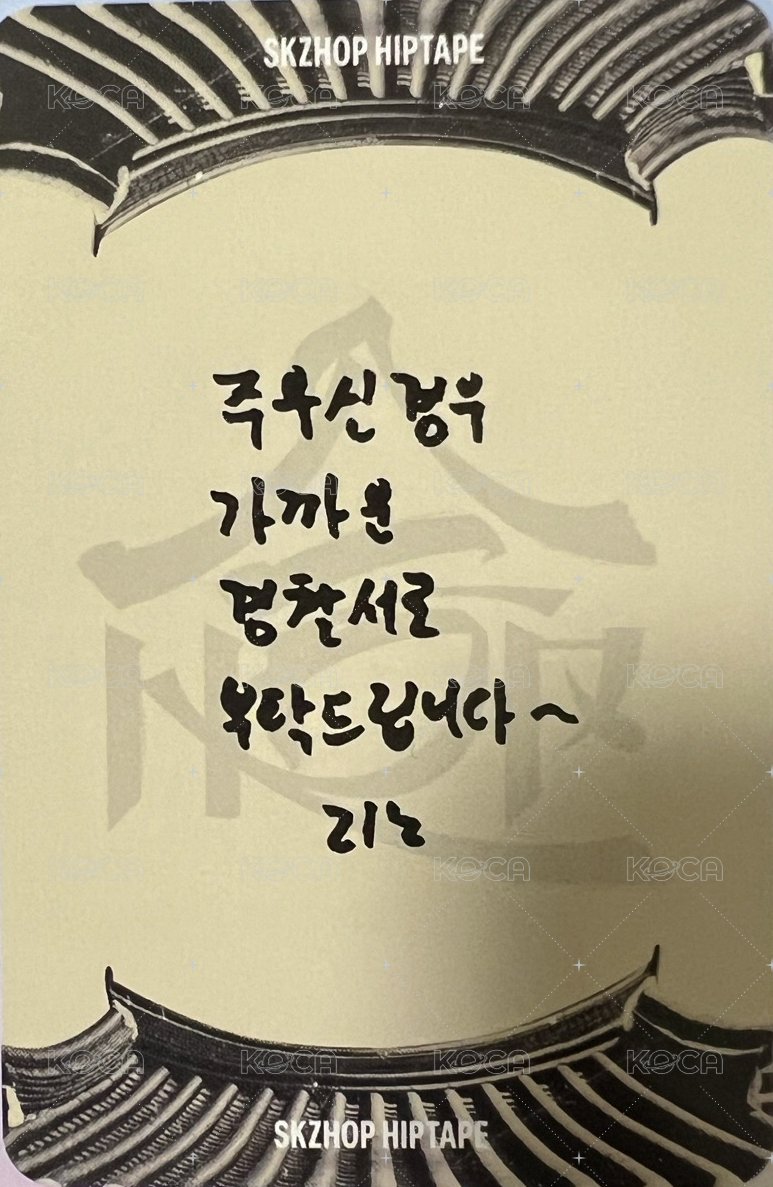 SKZHOP HIPTAPE
주우신 경우
가까운
경찰서로
부탁드립니다~
리노
SKZHOP HIPTAPE